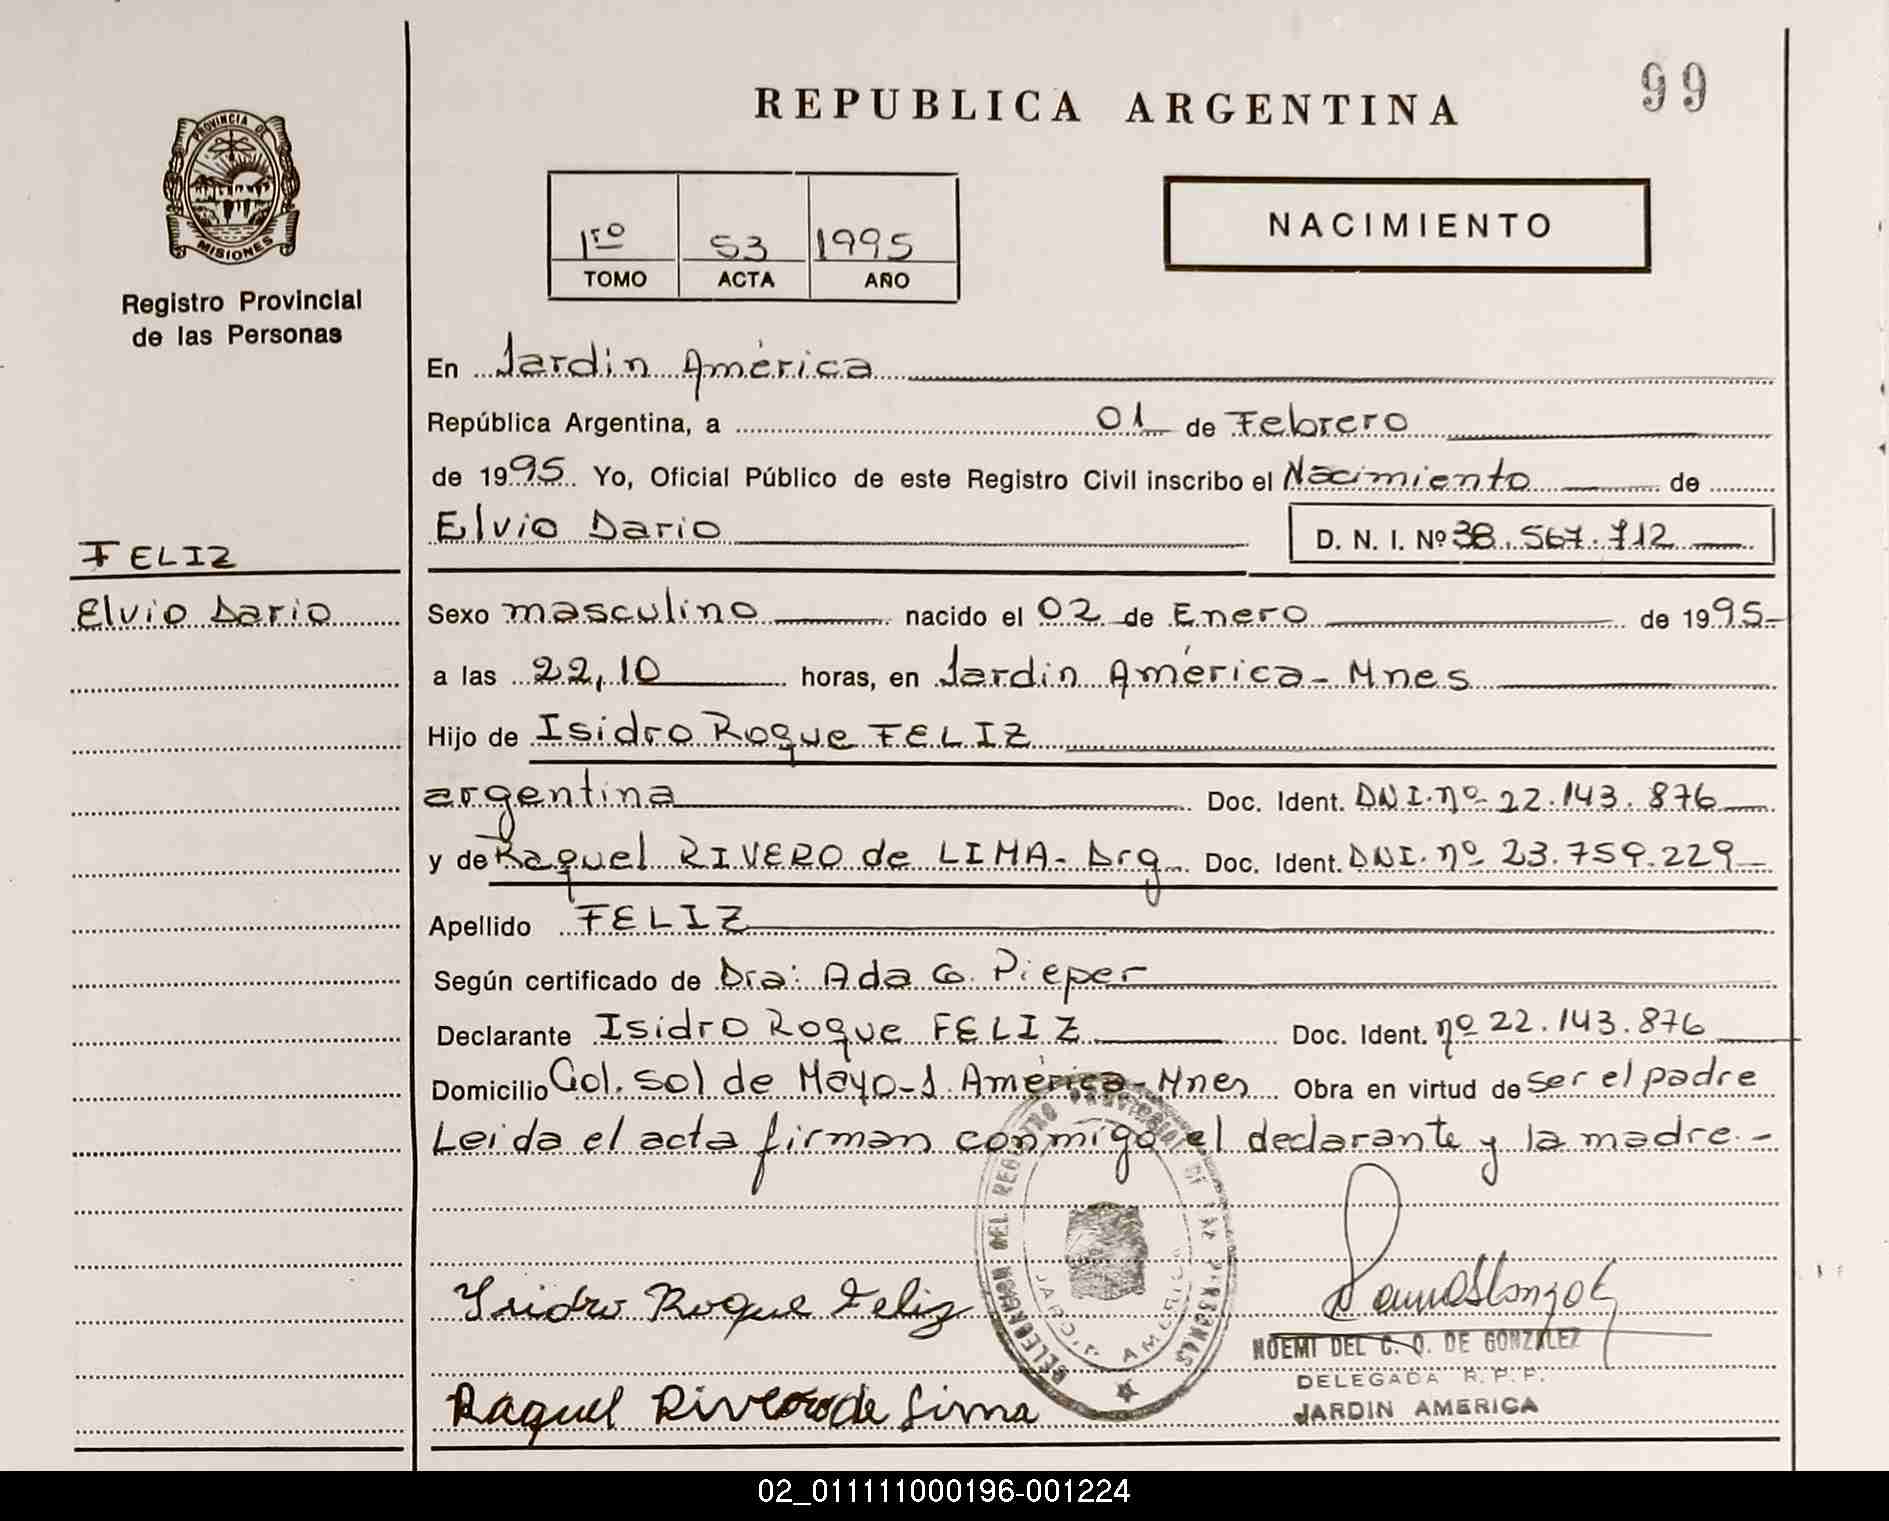 99
REPUBLICA ARGENTINA
PROVINCIA DE
MISIONES
Registro Provincial
de las Personas
1ro 53 1995
TOMO ACTA AÑO
NACIMIENTO
En Jardin América
República Argentina, a 01 de Febrero
de 1995 Yo, Oficial Público de este Registro Civil inscribo el Nacimiento de
Elvio Dario D. N. I. Nº 38.567.712
FELIZ
Elvio Dario
Sexo masculino nacido el 02 de Enero de 1995
a las 22,10 horas, en Jardin América - Mnes
Hijo de Isidro Roque FELIZ
argentina Doc. Ident. DNI. nº 22.143.876
y de Raquel RIVERO de LIMA - Arg Doc. Ident. DNI. nº 23.759.229
Apellido FELIZ
Según certificado de Dra: Ada G. Pieper
Declarante Isidro Roque FELIZ Doc. Ident. nº 22.143.876
Domicilio Col. Sol de Mayo - J. América - Mnes Obra en virtud de ser el padre
Leida el acta firman conmigo el declarante y la madre. -
DELEGACION DEL REGISTRO PROVINCIAL DE LAS PERSONAS
JARDIN AMERICA
Isidro Roque Feliz
NOEMI DEL C. O. DE GONZALEZ
DELEGADA R. P. P.
JARDIN AMERICA
Raquel Rivero de Lima
02_011111000196-001224